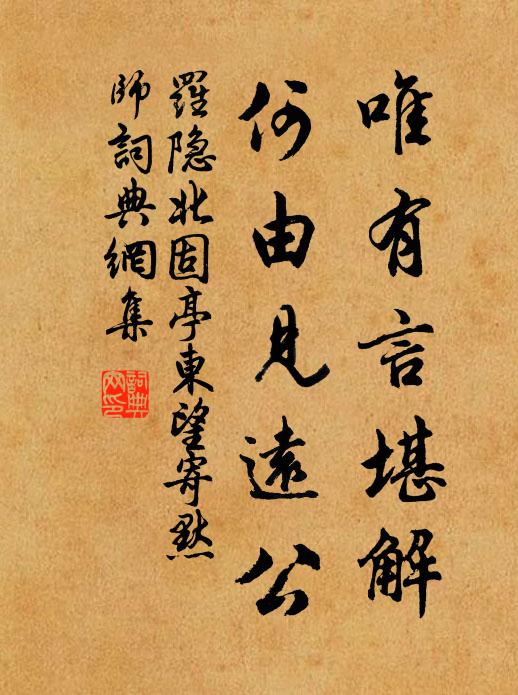 唯有言堪解
何由見遠公
羅隐北固亭東望寄默
師詞典網集
詞典
网印